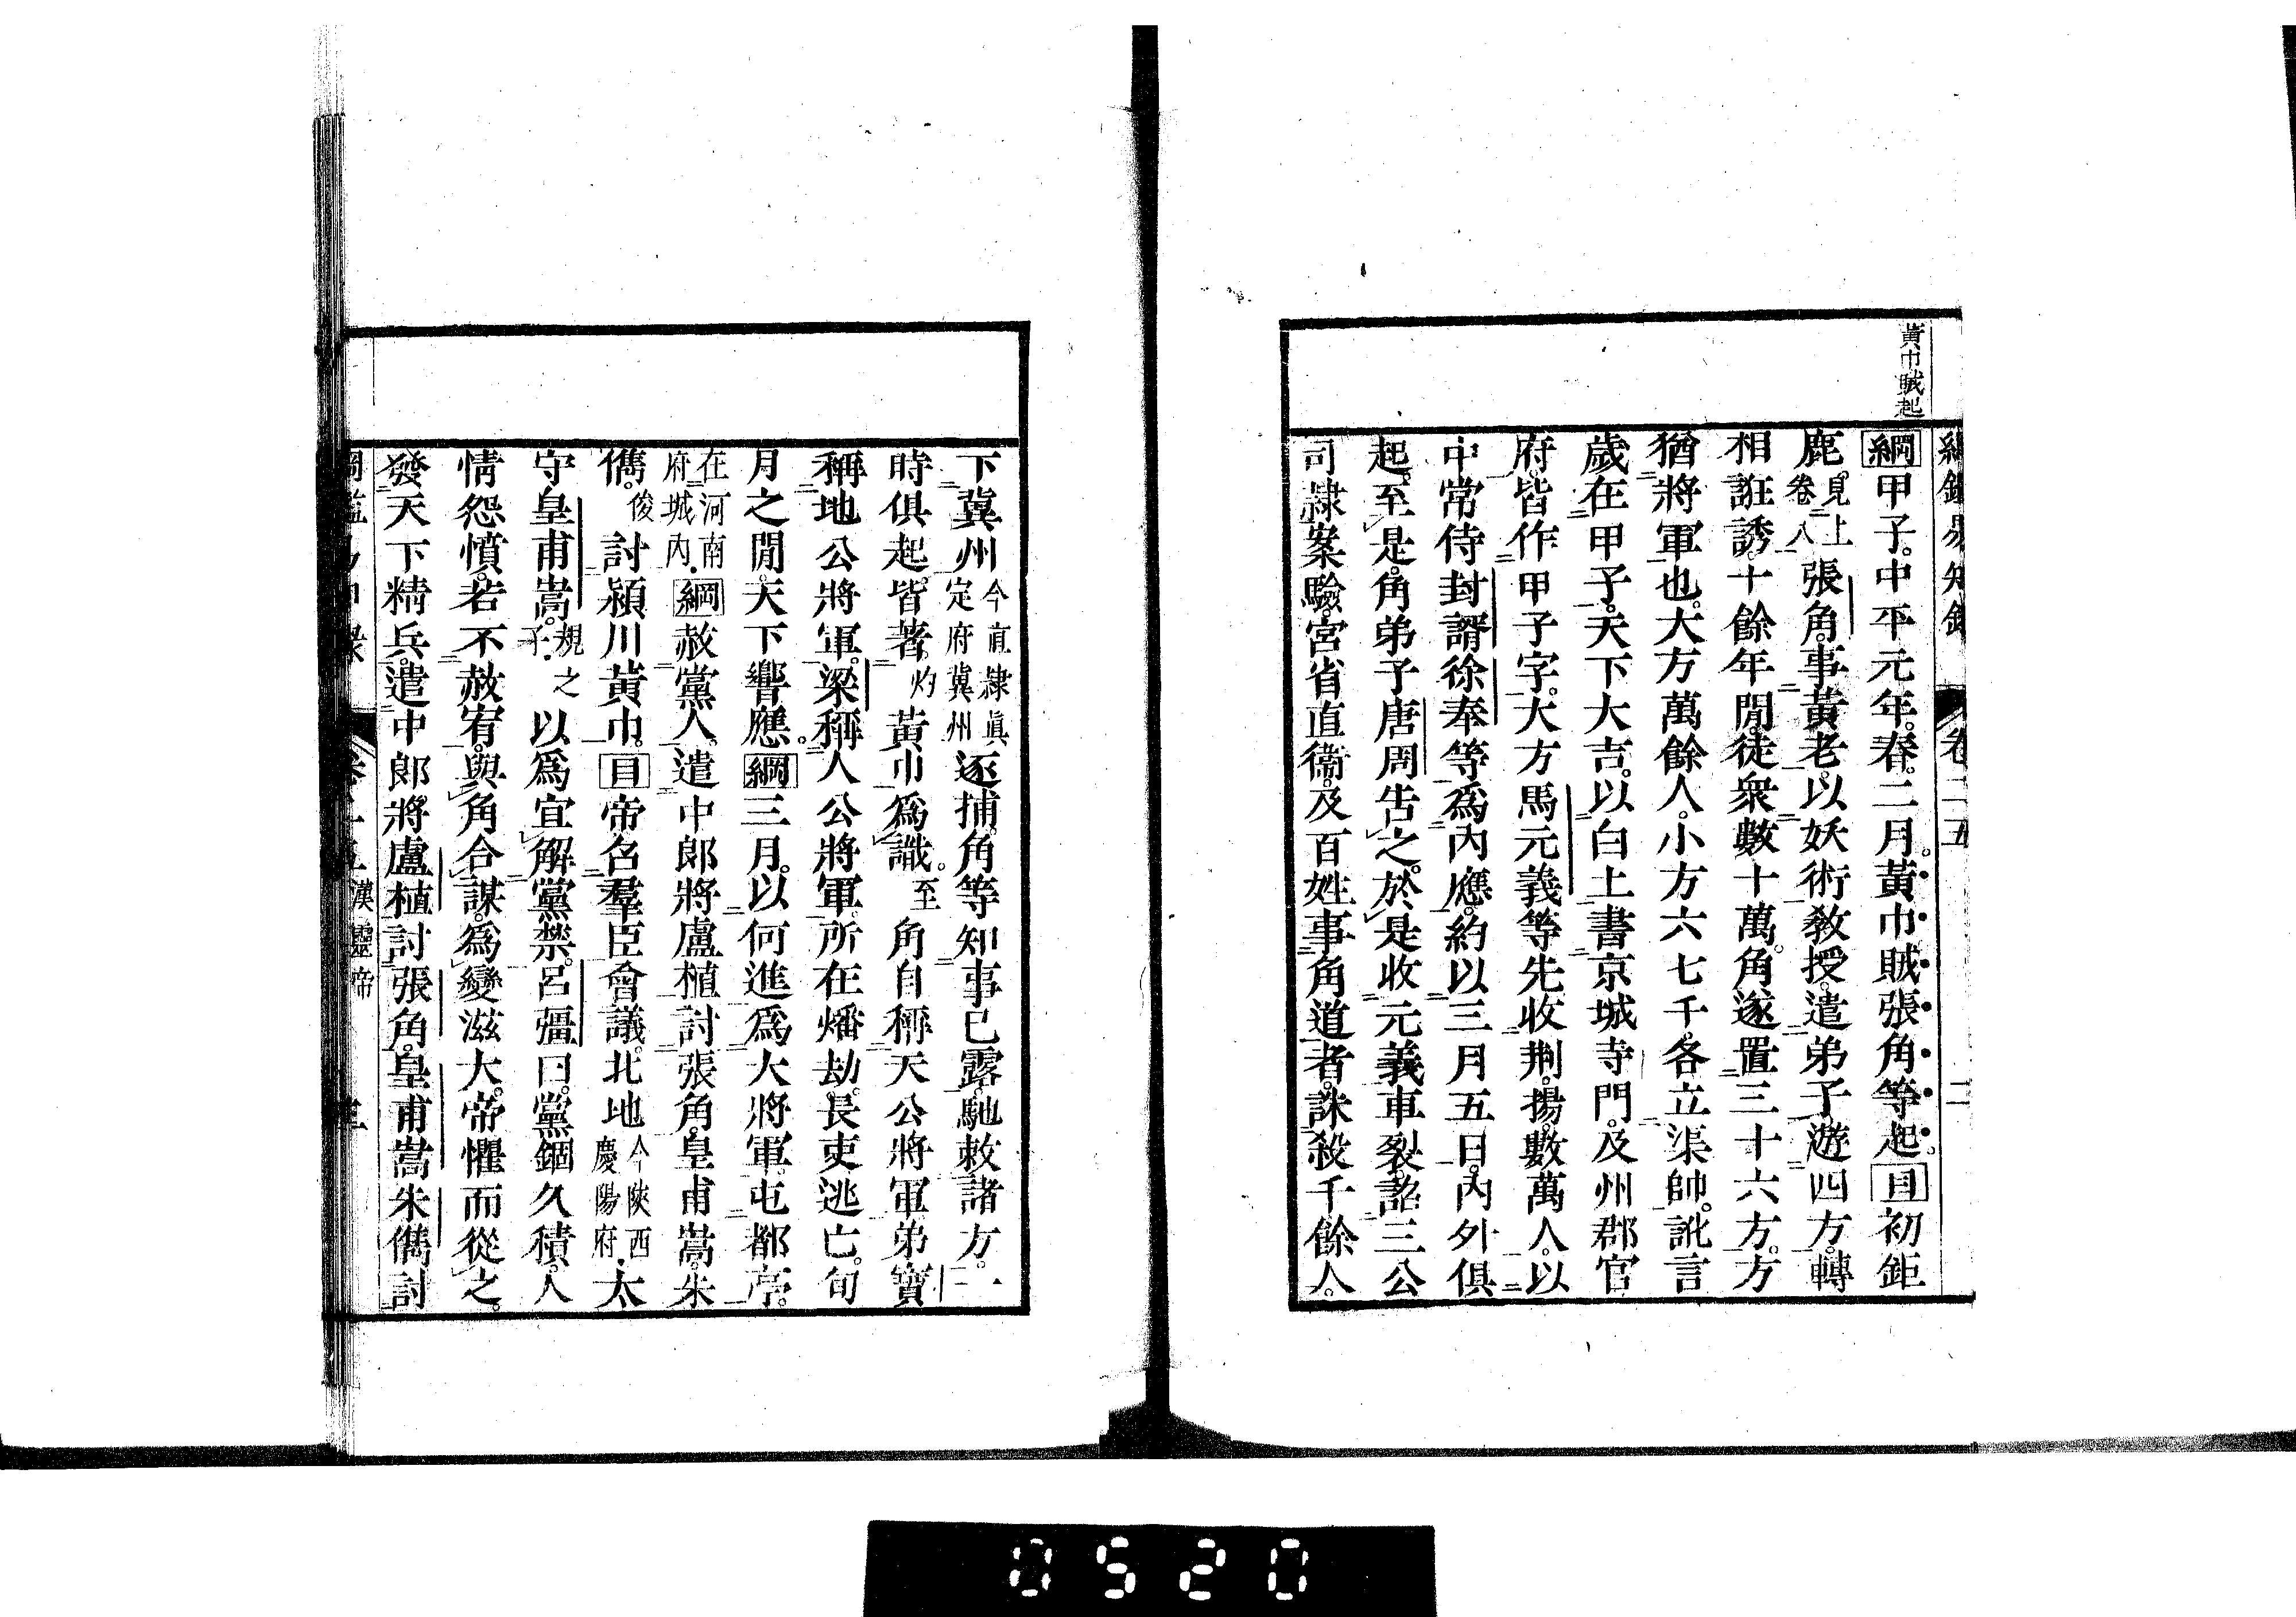 黃巾賊起
綱甲子。中平元年。春。二月。黃巾賊張角等起。目初鉅
鹿。見上卷八張角。事黃老。以妖術教授。遣弟子遊四方。轉
相誑誘。十餘年閒。徒衆數十萬。角遂置三十六方。方
猶將軍也。大方萬餘人。小方六七千。各立渠帥。訛言
歲在甲子。天下大吉。以白土書京城寺門。及州郡官
府。皆作甲子字。大方馬元義等先收荆。揚。數萬人。以
中常侍封諝徐奉等爲內應。約以三月五日。內外俱
起。至是。角弟子唐周告之。於是收元義車裂。詔三公
司隸案驗。宮省直衞。及百姓事角道者。誅殺千餘人。
下冀州今直隸眞定府冀州逐捕。角等知事已露。馳敕諸方。一
時俱起。皆著。灼黃巾爲識。至角自稱天公將軍。弟寶
稱地公將軍。梁稱人公將軍。所在燔劫。長吏逃亡。旬
月之閒。天下響應。綱三月。以何進爲大將軍。屯都亭。
在河南府城內。綱赦黨人。遣中郞將盧植討張角。皇甫嵩。朱
儁。俊討潁川黃巾。目帝召羣臣會議。北地今陝西慶陽府太
守皇甫嵩。規之子以爲宜解黨禁。呂彊曰。黨錮久積。人
情怨憤。若不赦宥。與角合謀。爲變滋大。帝懼而從之。
發天下精兵。遣中郞將盧植討張角。皇甫嵩朱儁討
漢靈帝
0520